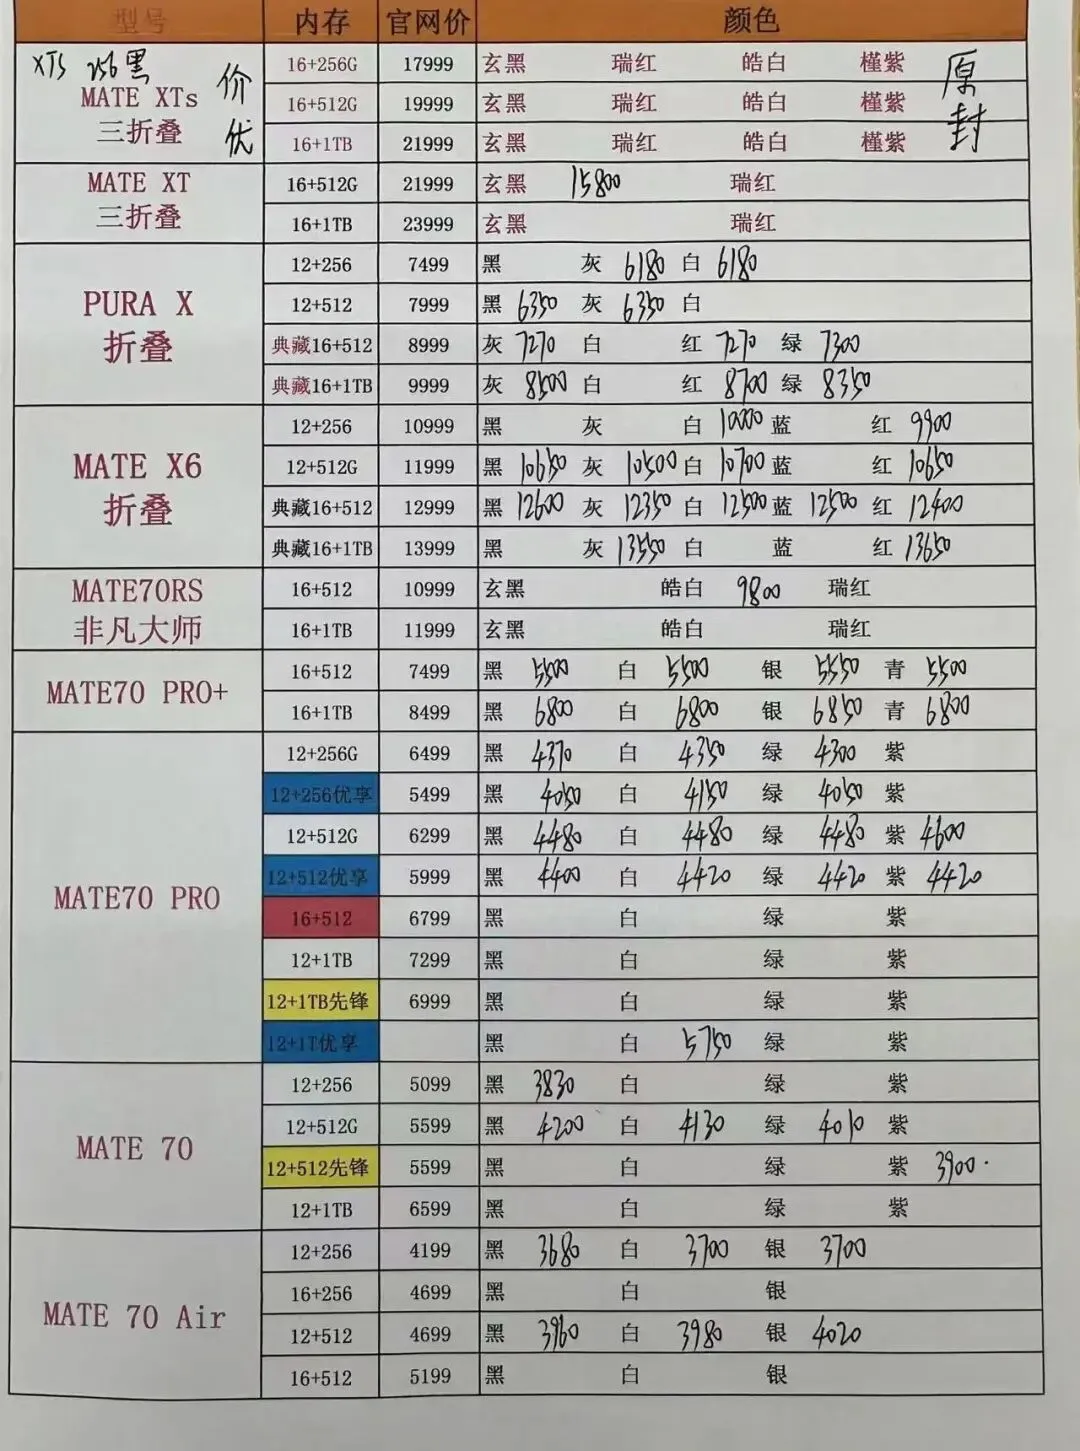 型号 内存 官网价 颜色
XTS 256黑 价优
MATE XTs 三折叠
16+256G 17999 玄黑 瑞红 皓白 槿紫
16+512G 19999 玄黑 瑞红 皓白 槿紫
16+1TB 21999 玄黑 瑞红 皓白 槿紫
原封
MATE XT 三折叠
16+512G 21999 玄黑 15800 瑞红
16+1TB 23999 玄黑 瑞红
PURA X 折叠
12+256 7499 黑 灰 6180 白 6180
12+512 7999 黑 6350 灰 6350 白
典藏16+512 8999 灰 7270 白 红 7270 绿 7300
典藏16+1TB 9999 灰 8500 白 红 8700 绿 8350
MATE X6 折叠
12+256 10999 黑 灰 白 10000 蓝 红 9900
12+512G 11999 黑 10650 灰 10500 白 10700 蓝 红 10650
典藏16+512 12999 黑 12600 灰 12350 白 12500 蓝 12500 红 12400
典藏16+1TB 13999 黑 灰 13550 白 蓝 红 13650
MATE70RS 非凡大师
16+512 10999 玄黑 皓白 9800 瑞红
16+1TB 11999 玄黑 皓白 瑞红
MATE70 PRO+
16+512 7499 黑 5500 白 5500 银 5550 青 5500
16+1TB 8499 黑 6800 白 6800 银 6850 青 6800
MATE70 PRO
12+256G 6499 黑 4370 白 4350 绿 4300 紫
12+256优享 5499 黑 4050 白 4150 绿 4050 紫
12+512G 6299 黑 4480 白 4480 绿 4480 紫 4600
12+512优享 5999 黑 4400 白 4420 绿 4420 紫 4420
16+512 6799 黑 白 绿 紫
12+1TB 7299 黑 白 绿 紫
12+1TB先锋 6999 黑 白 绿 紫
12+1T优享 黑 白 5750 绿 紫
MATE 70
12+256 5099 黑 3830 白 绿 紫
12+512G 5599 黑 4200 白 4130 绿 4010 紫
12+512先锋 5599 黑 白 绿 紫 3900.
12+1TB 6599 黑 白 绿 紫
MATE 70 Air
12+256 4199 黑 3680 白 3700 银 3700
16+256 4699 黑 白 银
12+512 4699 黑 3960 白 3980 银 4020
16+512 5199 黑 白 银